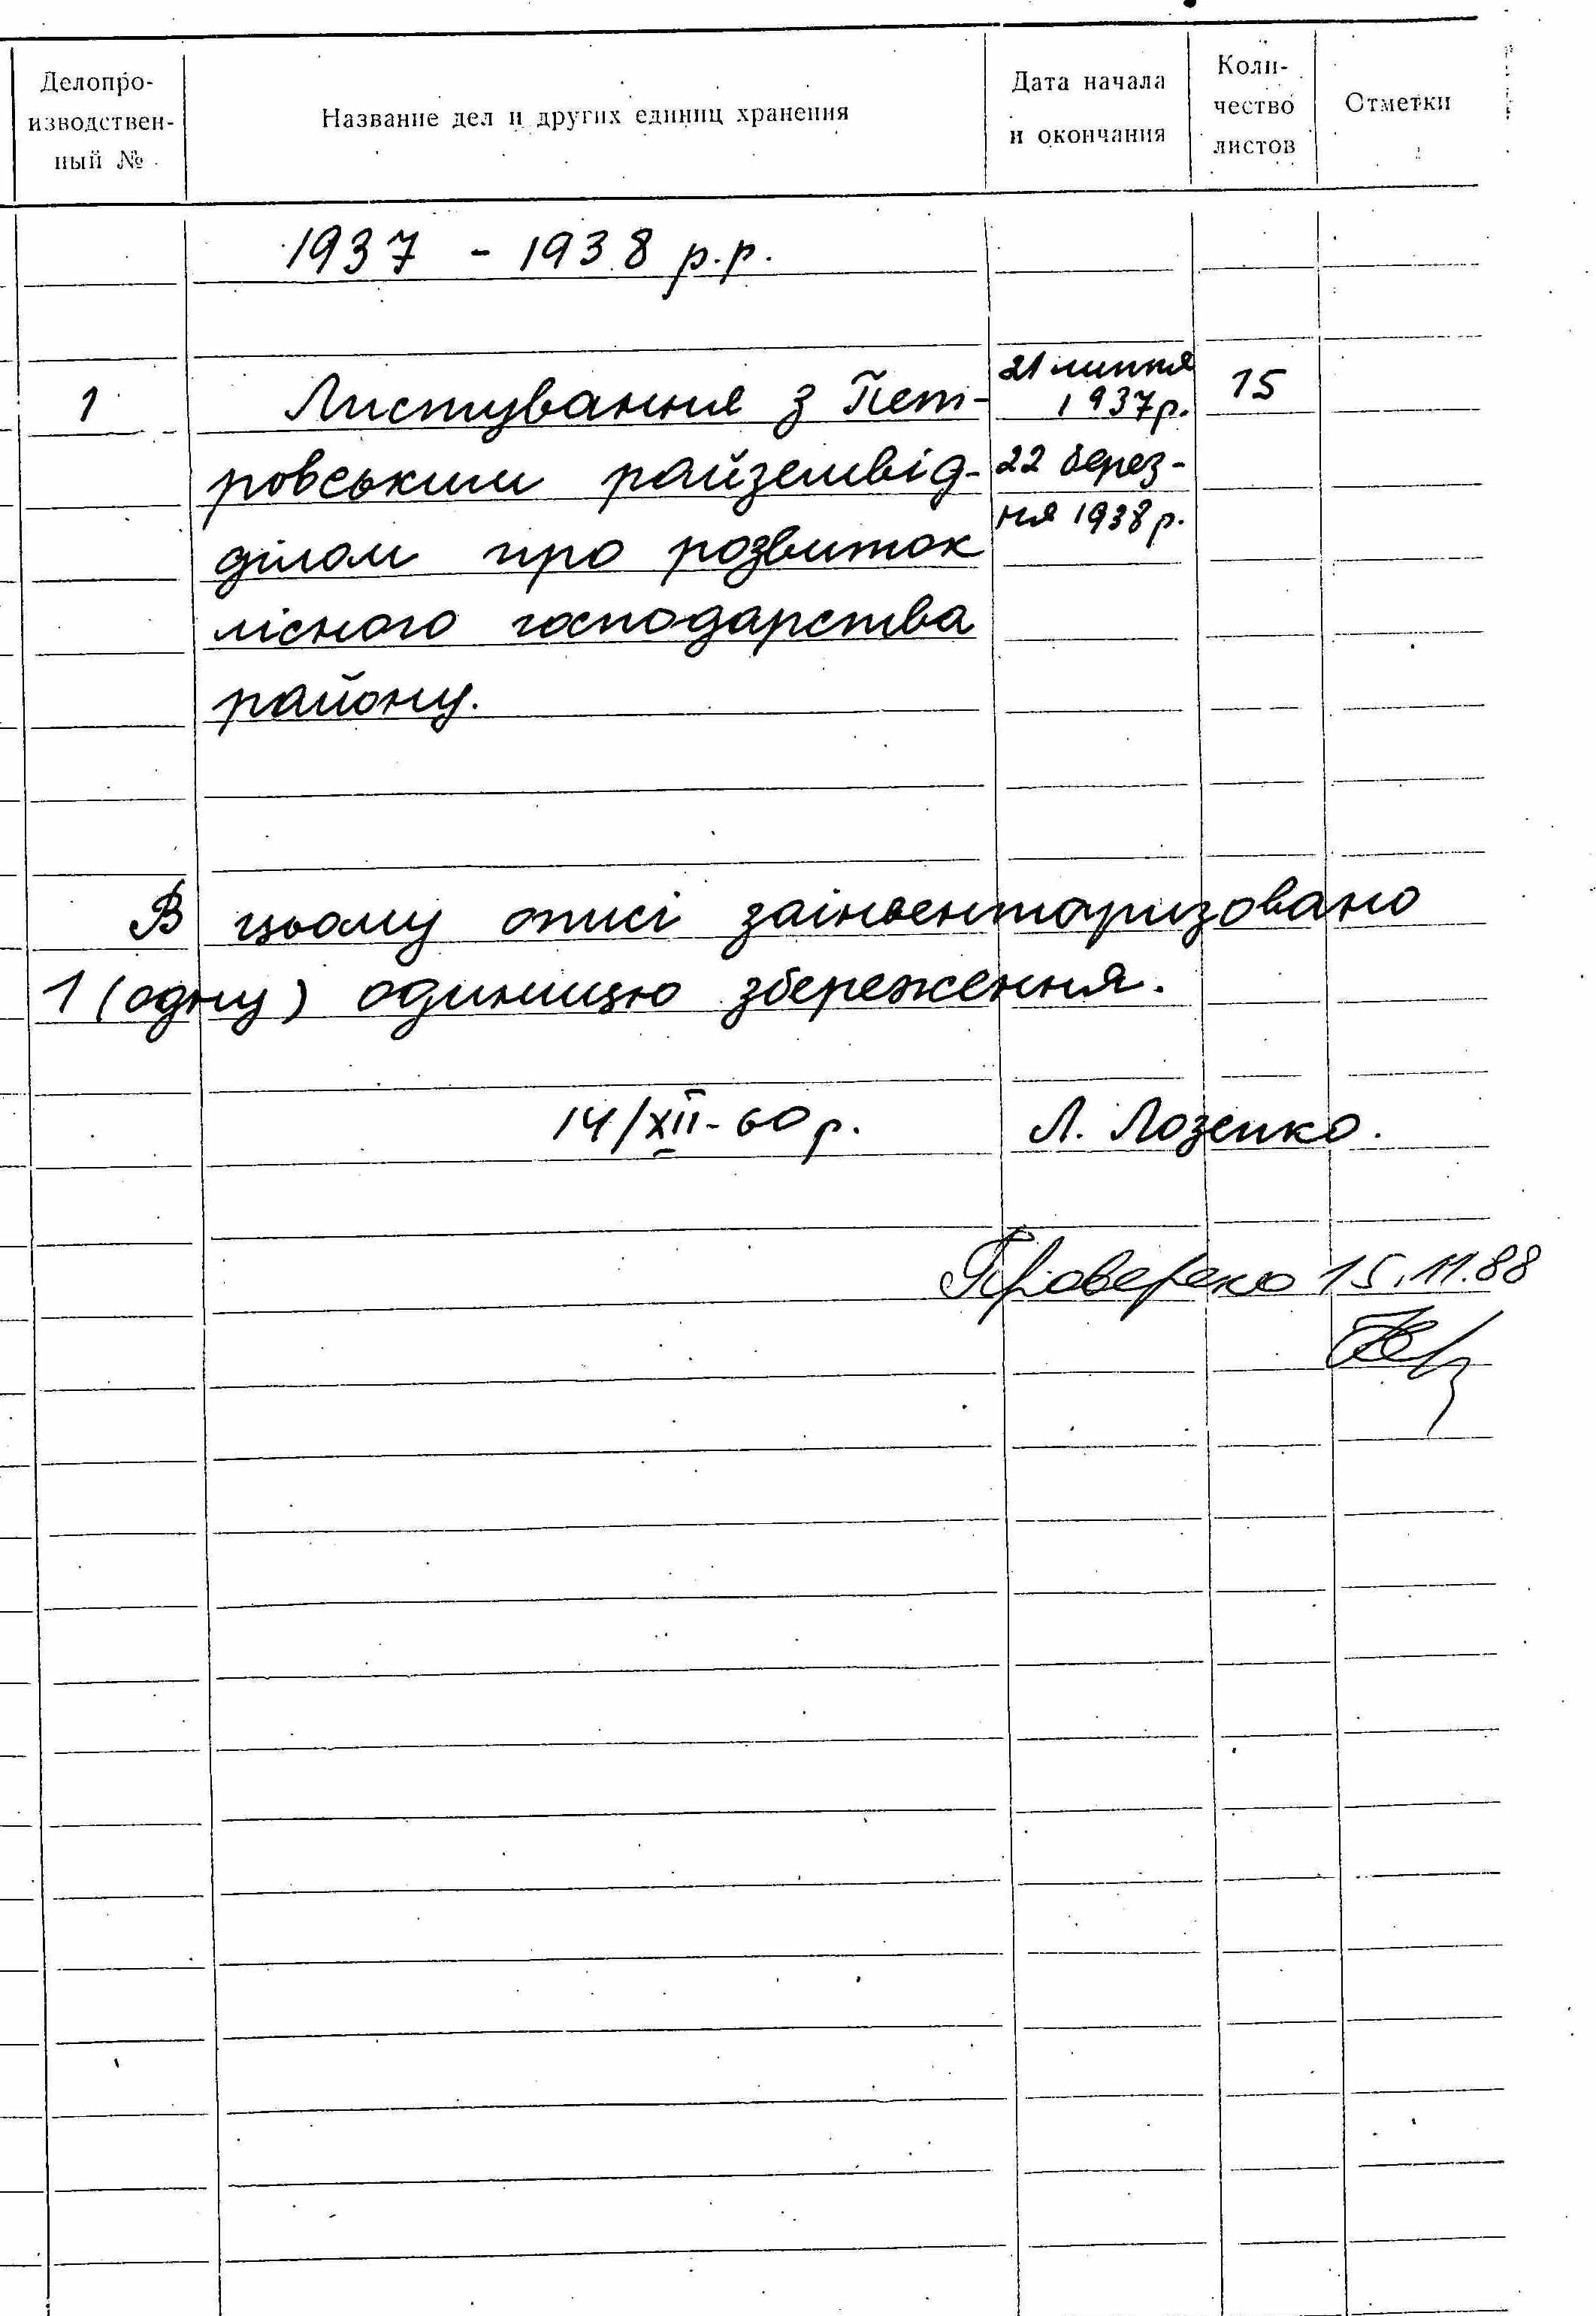 Делопро-
изводствен-
ный №
Название дел и других единиц хранения
Дата начала
и окончания
Коли-
чество
листов
Отметки
1937 - 1938 р.р.
1 Листування з Пет- 21 липня 1937р. 15
ровським райземвід- 22 берез-
ділом про розвиток ня 1938р.
лісного господарства
району.
В цьому описі заінвентаризовано
1 (одну) одиницю збереження.
14/XII-60р. Л. Лозенко.
Проверено 15.11.88